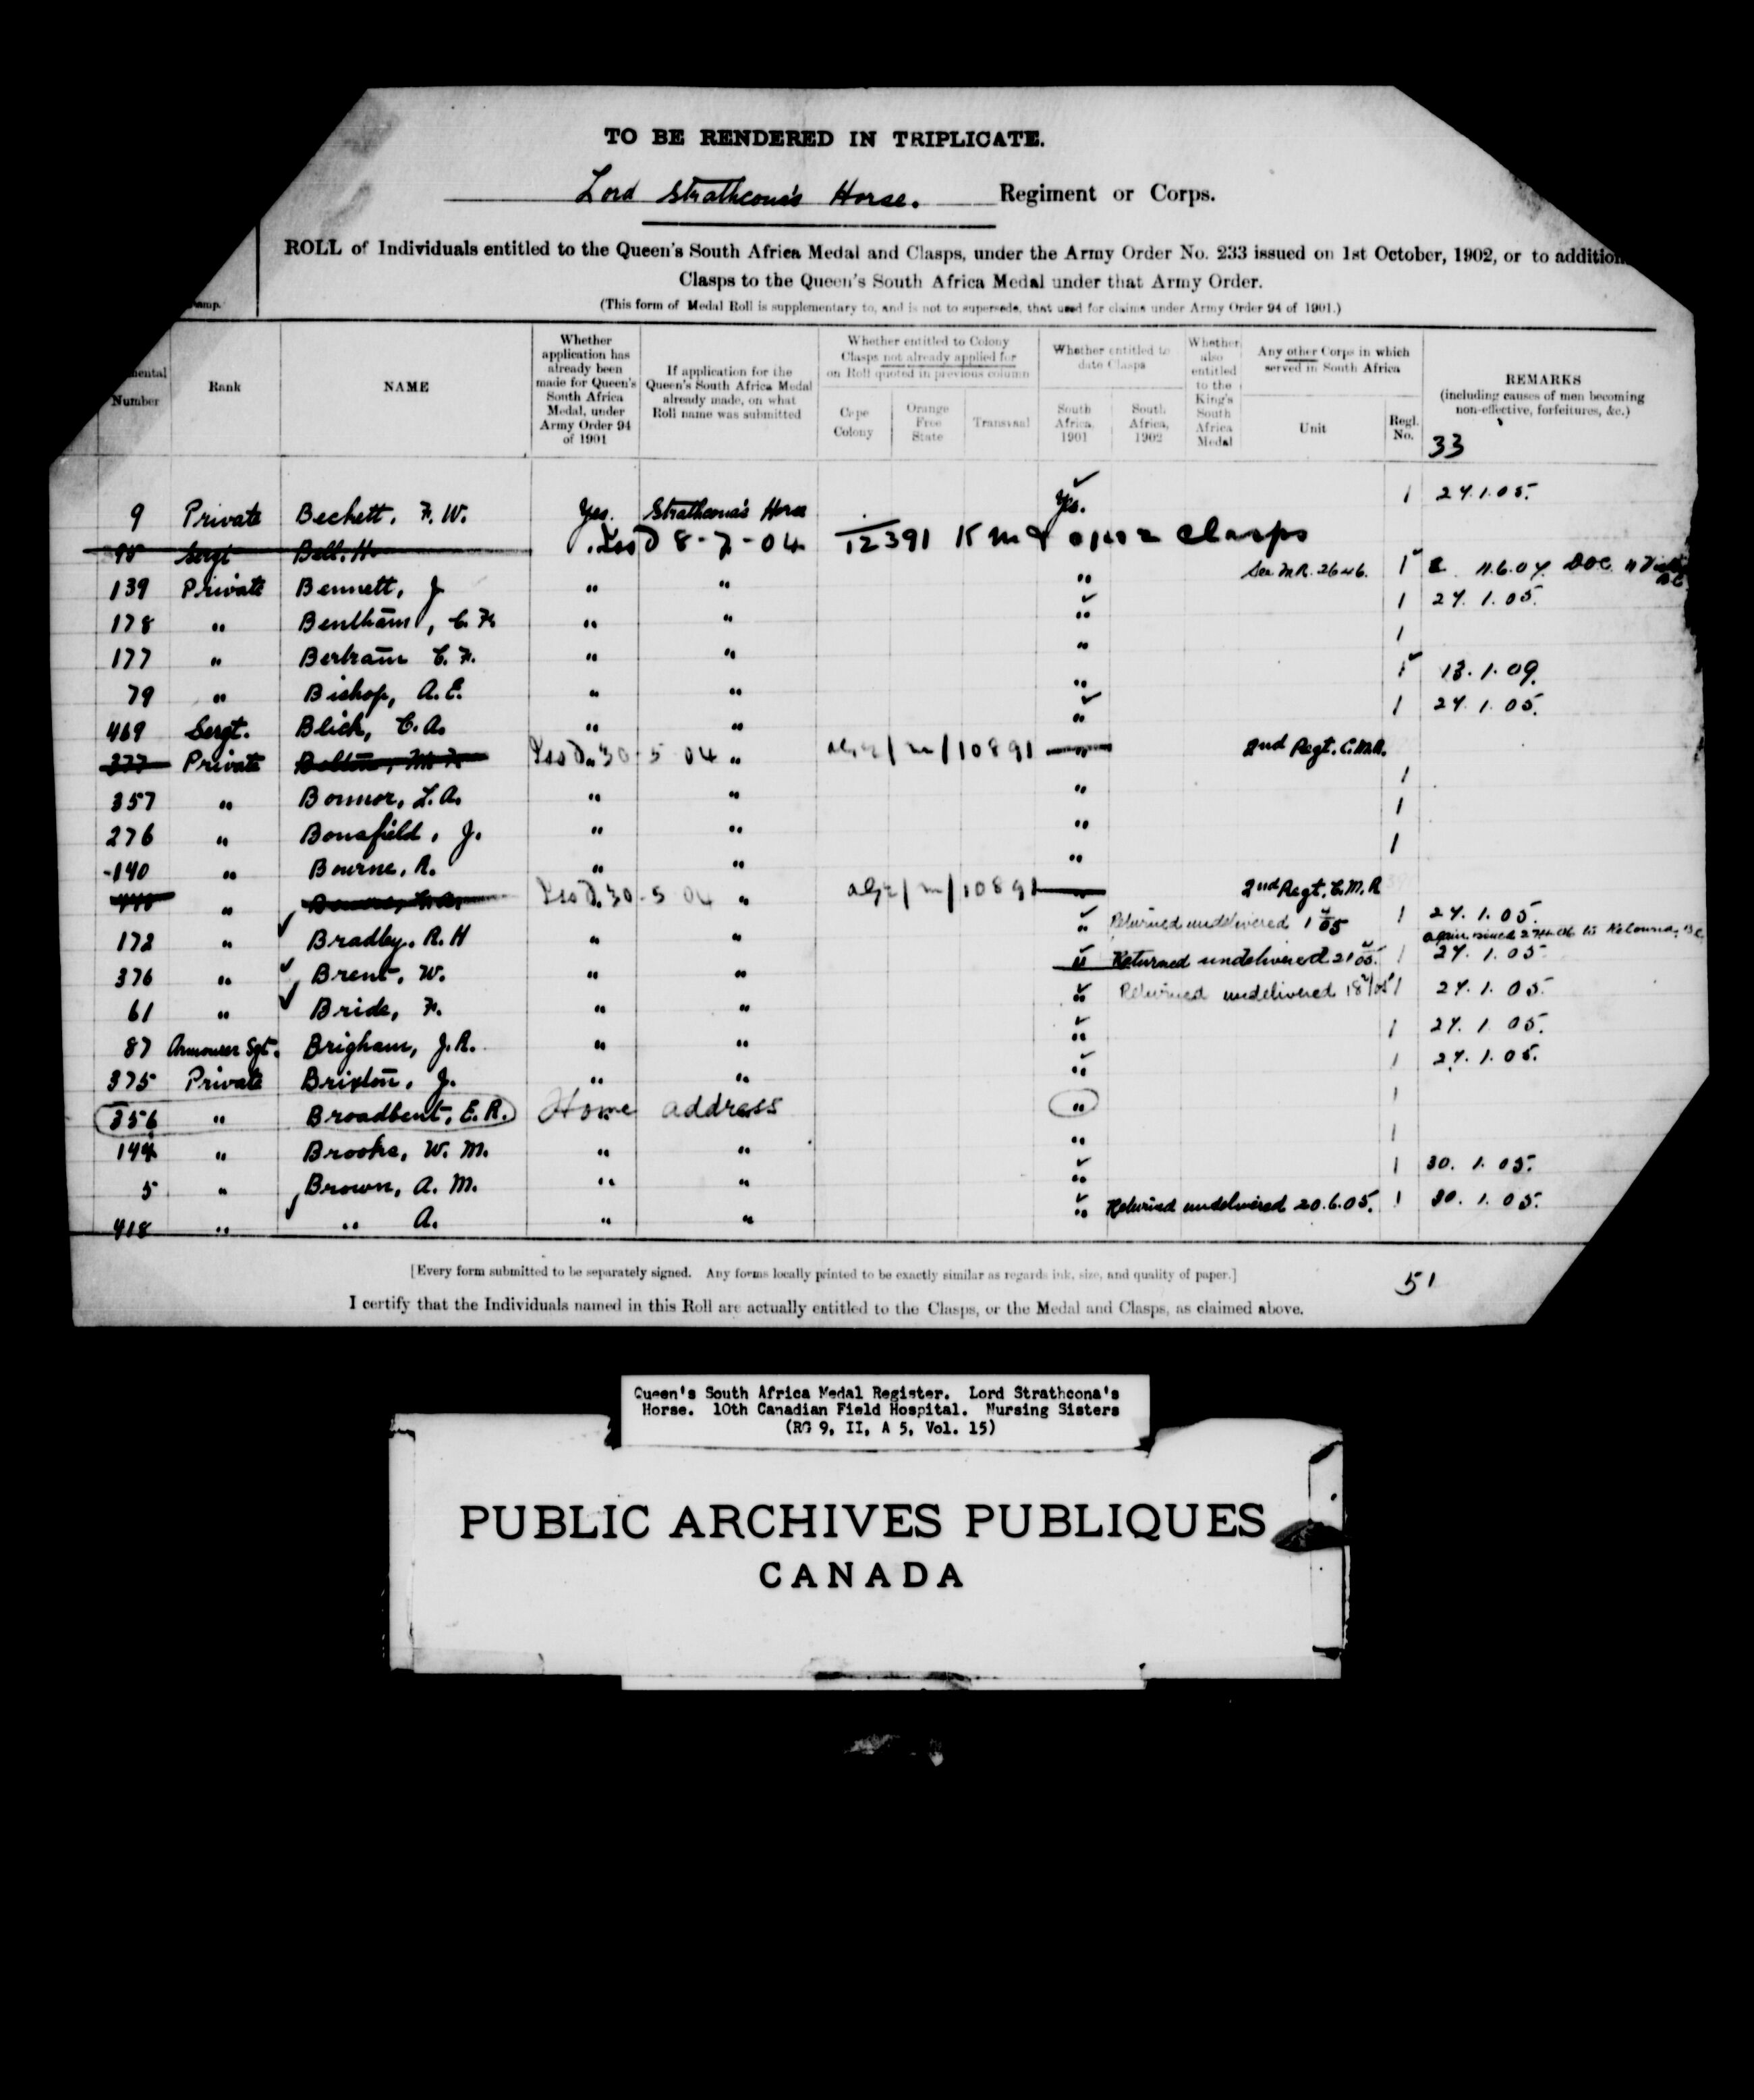 TO BE RENDERED IN TRIPLICATE.
Lord Strathcona's Horse. Regiment or Corps.
ROLL of Individuals entitled to the Queen's South Africa Medal and Clasps, under the Army Order No. 233 issued on 1st October, 1902, or to addition
Clasps to the Queen's South Africa Medal under that Army Order.
(This form of Medal Roll is supplementary to, and is not to supersede, that used for claims under Army Order 94 of 1901.)
Number Rank NAME Whether application has already been made for Queen's South Africa Medal, under Army Order 94 of 1901 If application for the Queen's South Africa Medal already made, on what Roll name was submitted Whether entitled to Colony Clasps not already applied for on Roll quoted in previous column Cape Colony Orange Free State Transvaal Whether entitled to date Clasps South Africa, 1901 South Africa, 1902 Whether also entitled to the King's South Africa Medal Any other Corps in which served in South Africa Unit Regl. No. REMARKS (including causes of men becoming non-effective, forfeitures, &c.)
33
9 Private Beckett, F. W. Yes. Strathcona's Horse Yes. 1 27.1.05.
95 Sergt Bell. H. Issd 8-7-04 12391 clasps
139 Private Bennett, J " " " See M.R. 2646. 1 11.6.07. DOC 11
178 " Bentham, C. F. " " " 1 27.1.05.
177 " Bertram C. F. " " " 1
79 " Bishop, A. E. " " " 1 13.1.09.
469 Sergt. Blick, C. A. " " " 1 27.1.05.
377 Private Bolton, M. F. Issd. 30-5 04 " 10891 " 2nd Regt. C.M.R.
357 " Bonnor, L. A. " " " 1
276 " Bonsfield, J. " " " 1
140 " Bourne, R. " " " 1
" Issd. 30-5 04 " 10891 " 2nd Regt. C.M.R
172 " Bradley. R. H " " " Returned undelivered 1 05 1 27.1.05.
again to Kelowna, BC
376 " Brent, W. " " " Returned undelivered 21 05. 1 27.1.05.
61 " Bride, F. " " " Returned undelivered 18 05 1 27.1.05.
87 Armourer Sgt. Brigham, J. R. " " " 1 27.1.05.
375 Private Brixton, J. " " " 1 27.1.05.
356 " Broadbent, E. R. Home address " 1
144 " Brooks, W. M. " " " 1
5 " Brown, A. M. " " " 1 30.1.05.
418 " " A. " " " Returned undelivered 20.6.05. 1 30.1.05.
[Every form submitted to be separately signed. Any forms locally printed to be exactly similar as regards ink, size, and quality of paper.]
51
I certify that the Individuals named in this Roll are actually entitled to the Clasps, or the Medal and Clasps, as claimed above.
Queen's South Africa Medal Register. Lord Strathcona's
Horse. 10th Canadian Field Hospital. Nursing Sisters
(RG 9, II, A 5, Vol. 15)
PUBLIC ARCHIVES PUBLIQUES
CANADA